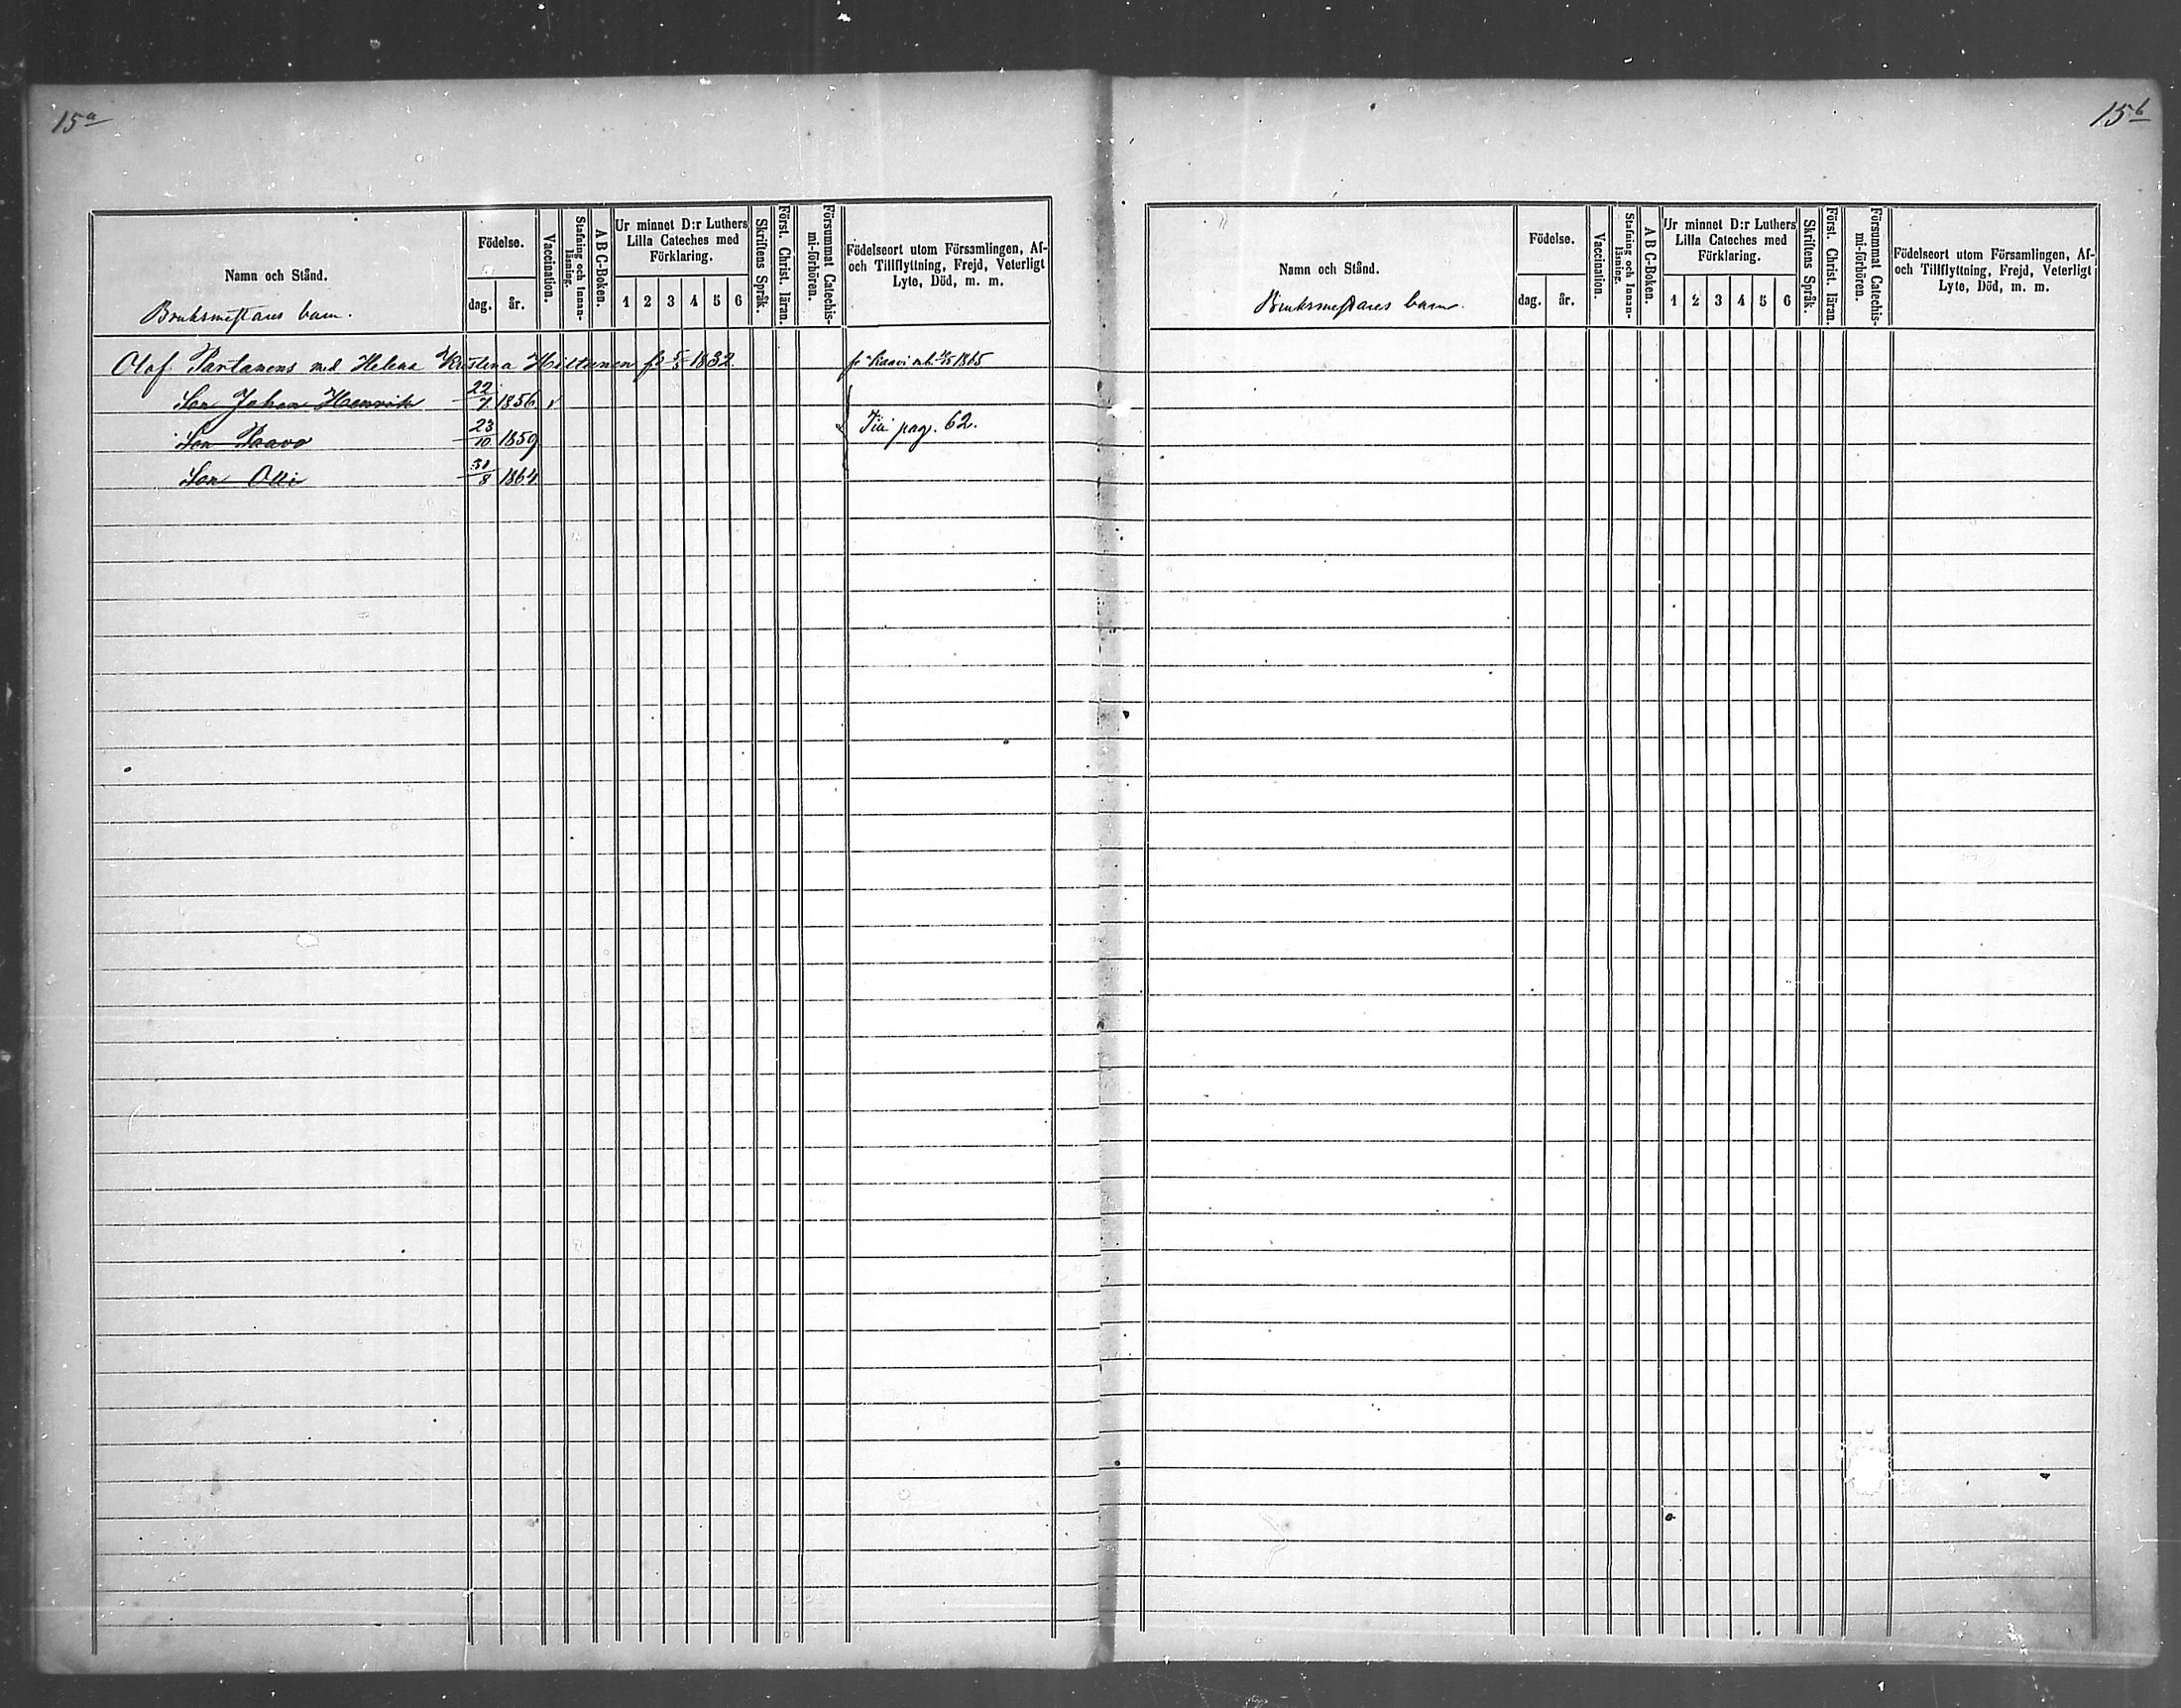 15a
Namn och Stånd.
Bruksmestares barn.
Födelse.
dag. år.
Vaccination.
Stafning och Innan-
läsning.
A B C-Boken.
Ur minnet D:r Luthers
Lilla Cateches med
Förklaring.
1 2 3 4 5 6
Skriftens Språk.
Först. Christ. läran.
Försummat Catechis-
mi-förhören.
Födelseort utom Församlingen, Af-
och Tillflyttning, Frejd, Veterligt
Lyte, Död, m. m.
Olof Partanens med Helena Kristina Hiltunen 5/5 1832. fr Kaavi 1865
Son Johan Henrik 22/7 1856 v
Son Paavo 23/10 1859 Till pag. 62.
Son Olli 31/8 1864
15b
Namn och Stånd.
Bruksmestares barn.
Födelse.
dag. år.
Vaccination.
Stafning och Innan-
läsning.
A B C-Boken.
Ur minnet D:r Luthers
Lilla Cateches med
Förklaring.
1 2 3 4 5 6
Skriftens Språk.
Först. Christ. läran.
Försummat Catechis-
mi-förhören.
Födelseort utom Församlingen, Af-
och Tillflyttning, Frejd, Veterligt
Lyte, Död, m. m.